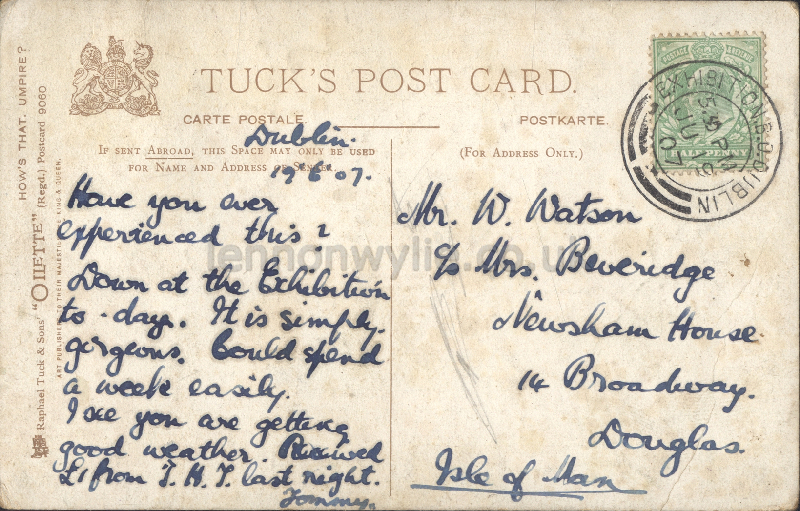 TUCK'S POST CARD.
CARTE POSTALE
POSTKARTE.
IF SENT ABROAD, THIS SPACE MAY ONLY BE USED
FOR NAME AND ADDRESS OF SENDER.
(FOR ADDRESS ONLY.)
HOW'S THAT, UMPIRE?
Raphael Tuck & Sons' "OILETTE" (Regd.) Postcard 9060
ART PUBLISHERS TO THEIR MAJESTIES THE KING & QUEEN.
Dublin.
19.6.07.
Have you ever
experienced this?
Down at the Exhibition
to-day. It is simply
gorgeous. Could spend
a week easily.
I see you are getting
good weather. Received
£1 from T. H. T. last night.
Tommy.
Mr. W. Watson
c/o Mrs. Beveridge
Newsham House
14 Broadway.
Douglas.
Isle of Man
POSTAGE
HALFPENNY
EXHIBITION B.O. DUBLIN
JU 19
07
lennonwylie.co.uk